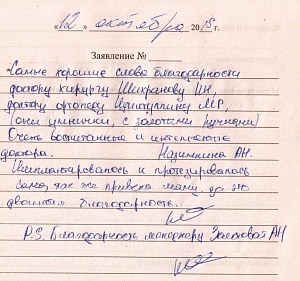 «12» октября 2015 г.
Заявление №
Самые хорошие слова благодарности
доктору хирургу Шихранову И.Н,
доктору ортопеду МР,
(они умнички, с золотыми ручками)
Очень воспитанные и интеллигентные
доктора. АН.
Имплантировалось и протезировалось
сама, так же привела маму. за это
двойная благодарность.
P.S. Благодарность менеджеру АН